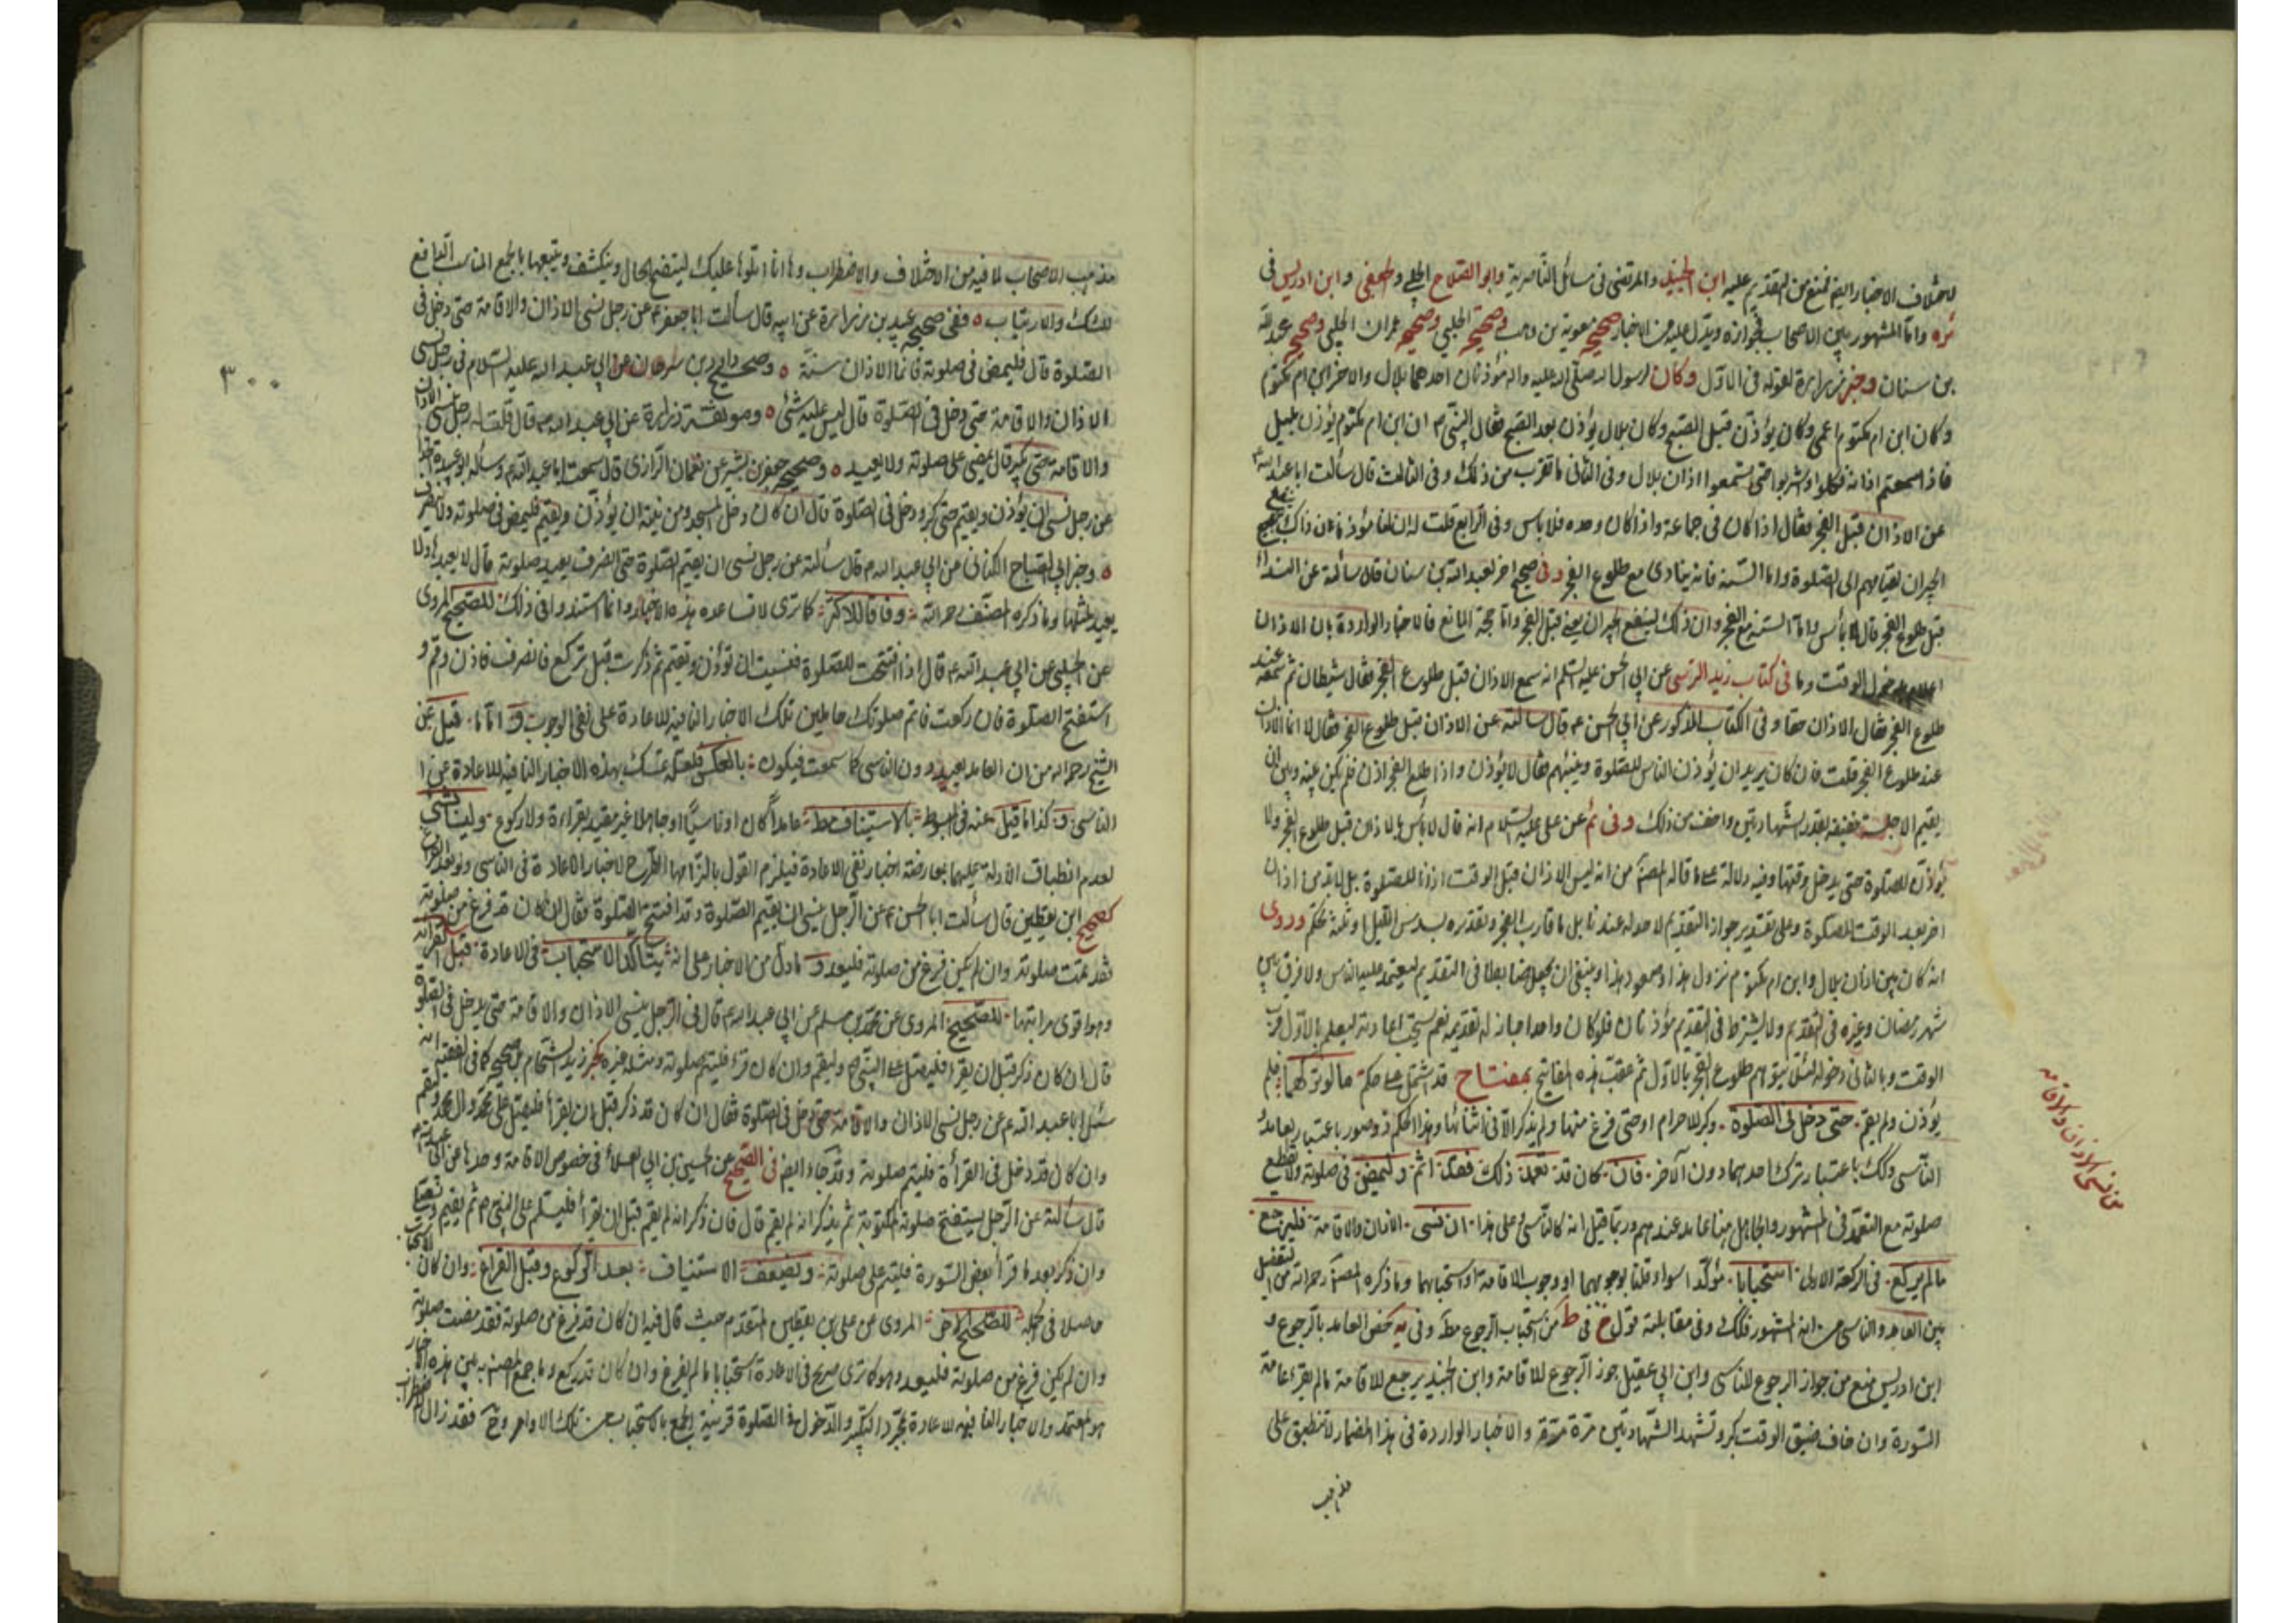 لاختلاف الاخبار ايضا فمنع من التقديم عليه ابن الجنيد والمرتضى في مسائل الناصرية وابو الصلاح الحلبي والجعفي وابن ادريس في
ئره واما المشهور بين الاصحاب فجوازه ويدل عليه من الاخبار صحيح معوية بن وهب وصحيح الحلبي وصحيح عمران الحلبي وصحيح عبد الله
بن سنان وخبر زرارة لقوله في الاول وكان لرسول الله صلى الله عليه واله مؤذنان احدهما بلال والاخر ابن ام مكتوم
وكان ابن ام مكتوم اعمى وكان يؤذن قبل الصبح وكان بلال يؤذن بعد الصبح فقال النبي ص ان ابن ام مكتوم يؤذن بليل
فاذا سمعتم اذانه فكلوا واشربوا حتى تسمعوا اذان بلال وفي الثاني ما تقرب من ذلك وفي الثالث قال سألت ابا عبد الله ع
عن الاذان قبل الفجر فقال اذا كان في جماعة واذا كان وحده فلا باس وفي الرابع قلت له ان لنا مؤذنا فان ذلك ينفع
الجيران لقيامهم الى الصلوة واما السنة فانه ينادى مع طلوع الفجر وفي صحيح اخر لعبد الله بن سنان قال سألته عن النداء
قبل طلوع الفجر قال لا بأس واما السنة مع الفجر وان ذلك لينفع الجيران يعني قبل الفجر واما حجة المانع فالاخبار الواردة بان الاذان
الوقت وما في كتاب زيد النرسي عن ابي الحسن عليه السلم انه سمع الاذان قبل طلوع الفجر فقال شيطان ثم سمعه عند
طلوع الفجر فقال الاذان حقا وفي الكتاب المذكور عن ابي الحسن ع قال سالته عن الاذان قبل طلوع الفجر فقال لا انما الاذان
عند طلوع الفجر قلت فان كان يريد ان يؤذن الناس للصلوة وينبههم فقال لا يؤذن واذا طلع الفجر اذن فلم يكن بينه وبين ان
يقيم الا جلسة خفيفة بقدر الشهادتين واخف من ذلك وفي ئم عن علي عليه السلام انه قال لا بأس بالاذان قبل طلوع الفجر ولا
يؤذن للصلوة حتى يدخل وقتها وفيه دلالة على ما قاله المصنف من انه ليس الاذان قبل الوقت اذانا للصلوة بل لا بد من اذان
اخر بعد الوقت للصلوة وعلى تقدير جواز التقديم لا حد له عندنا بل ما قارب الفجر وتقديره بسدس الليل او ثلثه تحكم وروى
انه كان بين اذان بلال وابن ام مكتوم نزول هذا وصعود هذا وينبغي ان يجعل ضابطا في التقديم ليعتمد عليه الناس ولا فرق بين
شهر رمضان وغيره في التقديم ولا يشترط في التقديم مؤذنان فلو كان واحدا جاز له تقديمه نعم يستحب اعادته ليعلم بالاول قرب
الوقت وبالثاني دخوله لئلا يتوهم طلوع الفجر بالاول ثم عقب هذه المفاتيح بمفتاح قد اشتمل على حكم ما لو تركهما فلم
يؤذن ولم يقم حتى دخل في الصلوة وكبر للاحرام او حتى فرغ منها ولم يذكر الا في اثنائها وهذا الحكم ذو صور باعتبار العامد و
الناسي وكذلك باعتبار ترك احدهما دون الاخر فان كان قد تعمد ذلك فعله اثم وليمض في صلوته ولا يقطع
صلوته مع التعمد في المشهور والجاهل هنا عامد عندهم وربما قيل انه كالناسي وعلى هذا ان نسى الاذان والاقامة فليرجع
ما لم يركع في الركعة الاولى استحبابا مؤكدا سواء قلنا بوجوبهما او وجوب الاقامة او استحبابهما وما ذكره المصنف رحمه الله من التفصيل
بين العامد والناسي هو المشهور وفي مقابلته قول خ في ط من استحباب الرجوع مط وفي يه خص العامد بالرجوع و
ابن ادريس منع من جواز الرجوع للناسي وابن ابي عقيل جوز الرجوع للاقامة وابن الجنيد يرجع للاقامة ما لم يقرء عامة
السورة وان خاف ضيق الوقت كبر وتشهد الشهادتين مرة مرة والاخبار الواردة في هذا المضمار لا تنطبق على
مذهب
من نسى الاذان والاقامة
٣٠٠
مذهب الاصحاب لما فيه من الاختلاف والاضطراب وها انا اتلوها عليك ليتضح الحال وينكشف ونتبعها بالجمع المناسب الدافع
للشك والارتياب ففي صحيح عبيد بن زرارة عن ابيه قال سألت ابا جعفر ع عن رجل نسى الاذان والاقامة حتى دخل في
الصلوة قال فليمض في صلوته فانما الاذان سنة وصحيح داود بن سرحان عن ابي عبد الله عليه السلام في رجل نسى
الاذان والاقامة حتى دخل في الصلوة قال ليس عليه شئ وموثقة زرارة عن ابي عبد الله ع قال قلت له رجل نسى الاذان
والاقامة حتى يكبر قال يمضي على صلوته ولا يعيد وصحيح جعفر بن بشير عن نعمان الرازي قال سمعت ابا عبد الله ع وسأله ابو عبيدة الحذاء
عن رجل نسى ان يؤذن ويقيم حتى كبر ودخل في الصلوة قال ان كان دخل المسجد ومن نيته ان يؤذن ويقيم فليمض في صلوته ولا ينصرف
وخبر ابي الصباح الكناني عن ابي عبد الله ع قال سألته عن رجل نسى ان يقيم الصلوة حتى انصرف يعيد صلوته قال لا يعيدها ولا
يعود لمثلها وما ذكره المصنف رحمه الله وفاقا للاكثر كما ترى لا تساعده هذه الاخبار وانما استندوا في ذلك للصحيح المروى
عن الحلبي عن ابي عبد الله ع قال اذا افتتحت الصلوة فنسيت ان تؤذن وتقيم ثم ذكرت قبل تركع فانصرف فاذن واقم و
استفتح الصلوة فان ركعت فاتم صلوتك حاملين تلك الاخبار النافية للاعادة على نفي الوجوب واما ما قيل عن
الشيخ رحمه الله من ان العامد يعيد دون الناسي كما سمعت فيكون بالعكس فلعله تمسك بهذه الاخبار النافية للاعادة عن
الناسي وكذا ما قيل عنه في المبسوط بالاستيناف مط عامدا كان او ناسيا او جاهلا غير مقيد بقراءة ولا ركوع وليسا بشئ
لعدم انطباق الادلة عليهما بمعارضة اخبار نفي الاعادة فيلزم القول بالتزامها الطرح لاخبار الاعادة في الناسي ولو بعد الفراغ
كصحيح ابن يقطين قال سألت ابا الحسن ع عن الرجل ينسى ان يقيم الصلوة وقد افتتح الصلوة فقال ان كان قد فرغ من صلوته
فقد تمت صلوته وان لم يكن فرغ من صلوته فليعد و ما دل من الاخبار على انه يتأكد الاستحباب في الاعادة قبل القراءة
وهو اقوى مراتبها للصحيح المروى عن محمد بن مسلم عن ابي عبد الله ع قال في الرجل ينسى الاذان والاقامة حتى يدخل في الصلوة
قال ان كان ذكر قبل ان يقرا فليصل على النبي ص وليقم وان كان قرء فليتم صلوته ومثله غيره كخبر زيد الشحام بل صحيحه كما في الفقيه انه
سئل ابا عبد الله ع عن رجل نسى الاذان والاقامة حتى دخل في الصلوة فقال ان كان قد ذكر قبل ان يقرأ فليصل على محمد وال محمد وليقم
وان كان قد دخل في القرأة فليتم صلوته وقد جاء ايضا في الصحيح عن الحسين بن ابي العلاء في خصوص الاقامة وحدها عن ابي عبد الله ع
قال سألته عن الرجل يستفتح صلوته المكتوبة ثم يذكر انه لم يقم قال فان ذكر انه لم يقم قبل ان يقرأ فليسلم على النبي ص ثم يقيم ويصلي
وان ذكر بعد ما قرأ بعض السورة فليتم على صلوته ويضعف الاستيناف بعد الركوع وقبل الفراغ وان كان الاستحباب
حاصلا في الجملة للصحيح الاخر المروى عن علي بن يقطين المتقدم حيث قال فيه ان كان قد فرغ من صلوته فقد مضت صلوته
وان لم يكن فرغ من صلوته فليعد وهو كما ترى صريح في الاعادة استحبابا ما لم يفرغ وان كان قد ركع وما جمع المصنف به بين هذه الاخبار
هو المعتمد والاخبار النافية للاعادة بمجرد التكبير والدخول في الصلوة قرينة الجمع بالاستحباب تلك الاوامر وح فقد زال الاضطراب